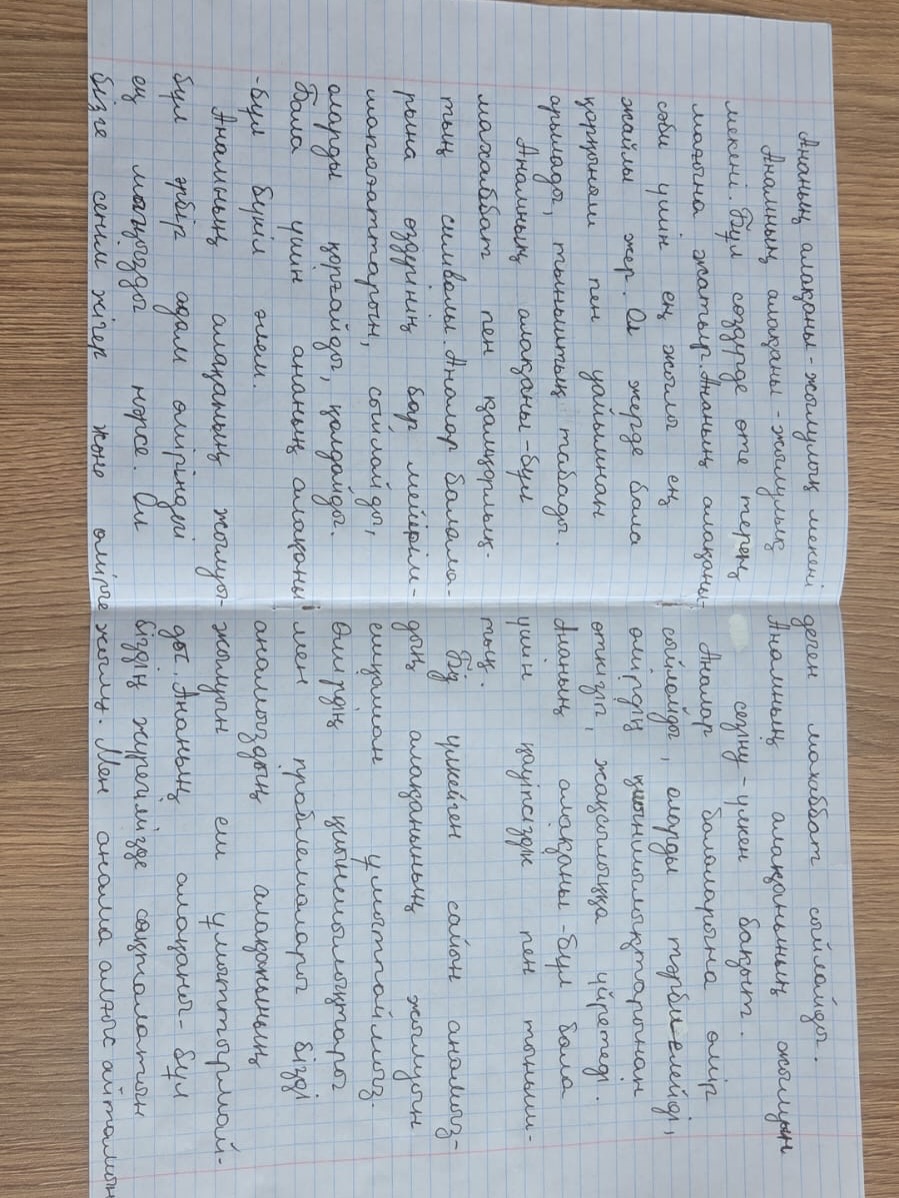 Ананың алақаны - жылулық мекені
Анамның алақаны - жылулық
мекені. Бұл сөздерде өте терең
мағына жатыр. Ананың алақаны-
сәби үшін ең жылы ең
жайлы жер. Ол жерде бала
қорқыныш пен уайымнан
арылады, тыныштық табады.
Анамның алақаны - бұл
махаббат пен қамқорлық-
тың символы. Аналар балала-
рына өздерінің бар мейірім-
махаббаттарын, сыйлайды,
оларды қорғайды, қолдайды.
Бала үшін ананың алақаны
- бұл бүкіл әлем.
Анамының алақанның жылуы-
бұл әрбір адам өміріндегі
ең маңызды нәрсе. Ол
бізге сенім жігер және өмірге
деген махаббат сыйлайды.
Анамның алақанының жылуын
сезіну - үлкен бақыт.
Аналар балаларына өмір
сыйлайды, оларды тәрбиелейді,
өмірдің қиыншылықтарынан
өткізіп, жақсылыққа үйретеді.
Ананың алақаны - бұл бала
үшін қауіпсіздік пен тыныш-
тық.
Біз үлкейген сайын анамыз-
дың алақанының жылуын
ешқашан ұмытпаймыз.
Өмірдің қиыншылықтары
мен проблемалары бізді
анамыздың алақанының
жылуын еш ұмыттырмай-
ды. Ананың алақаны - бұл
біздің жүрегімізде сақталатын
жылу. Мен анама алғыс айтамын